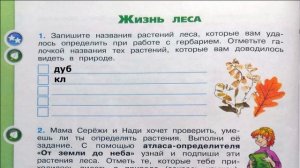 Жизнь леса
1. Запишите названия растений леса, которые вам уда-
лось определить при работе с гербарием. Отметьте га-
лочкой названия тех растений, которые вам доводилось
видеть в природе.
дуб
кл
2. Мама Серёжи и Нади хочет проверить, уме-
ешь ли ты определять растения. Выполни её
задание. С помощью атласа-определителя
"От земли до неба" узнай и подпиши эти
растения леса. Отметь те, которые тебе при-